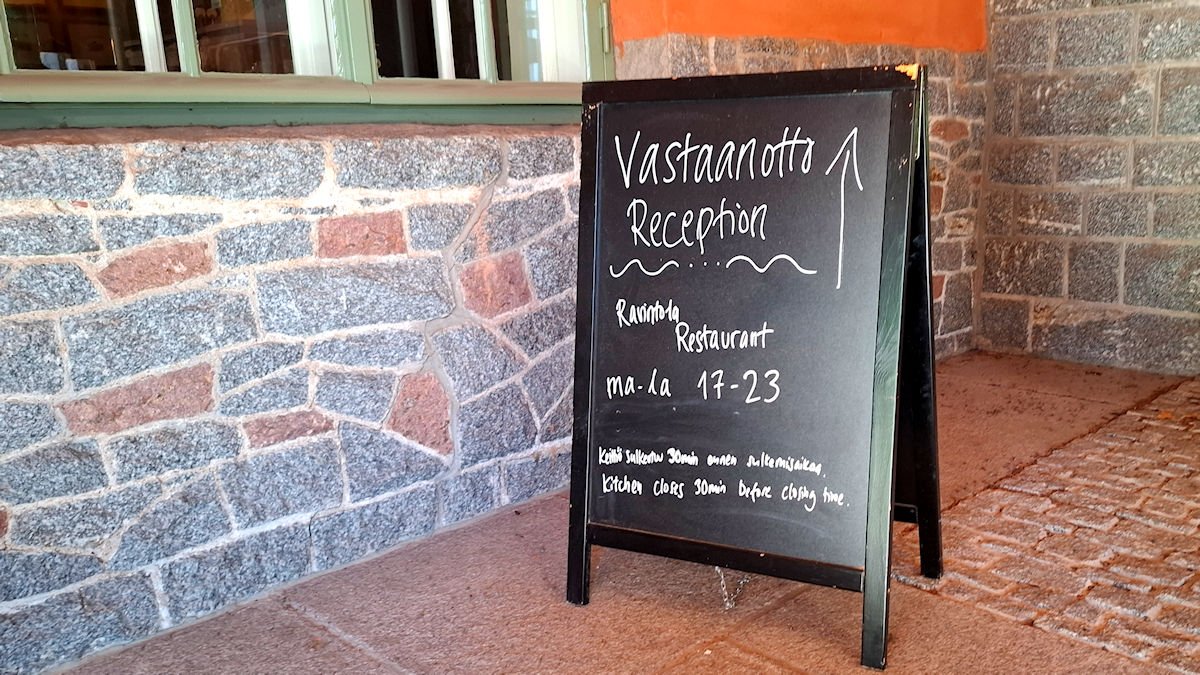 Vastaanotto
Reception
Ravintola
Restaurant
ma-la 17-23
Keittiö sulkeutuu 30min ennen sulkemisaikaa.
Kitchen closes 30min before closing time.